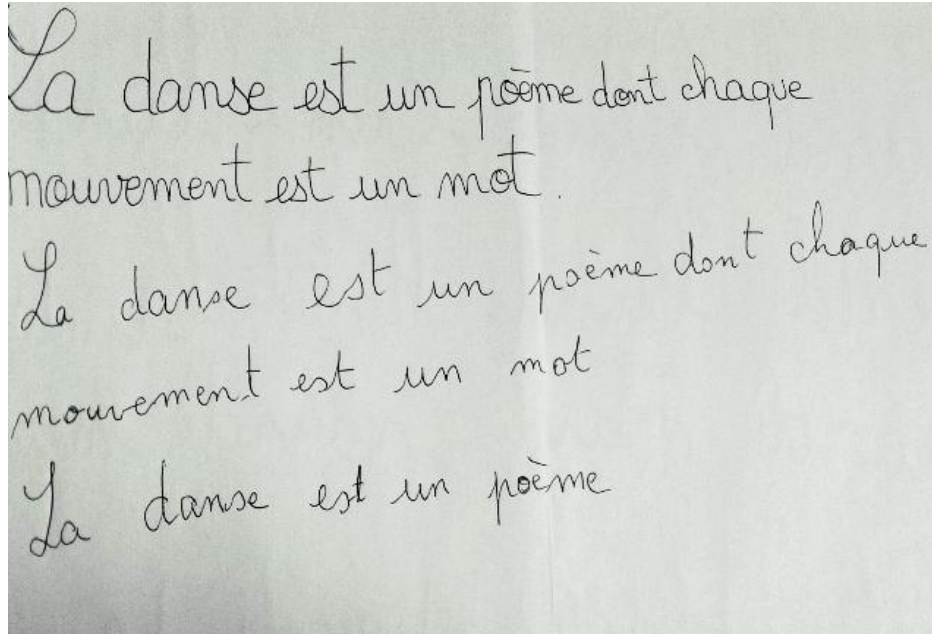 La danse est un poème dont chaque
mouvement est un mot.
La danse est un poème dont chaque
mouvement est un mot
La danse est un poème